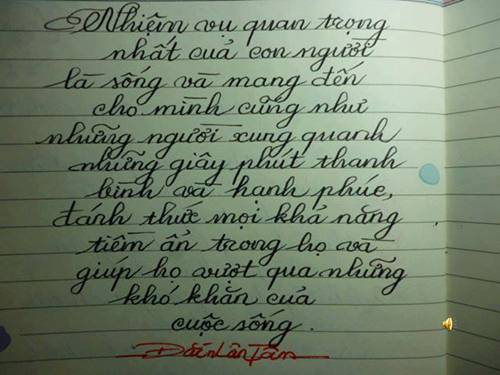 Nhiệm vụ quan trọng
nhất cuả con người
là sống và mang đến
cho mình cũng như
những người xung quanh
những giây phút thanh
bình và hạnh phúc,
đánh thức mọi khả năng
tiềm ẩn trong họ và
giúp họ vượt qua những
khó khăn cuả
cuộc sống.